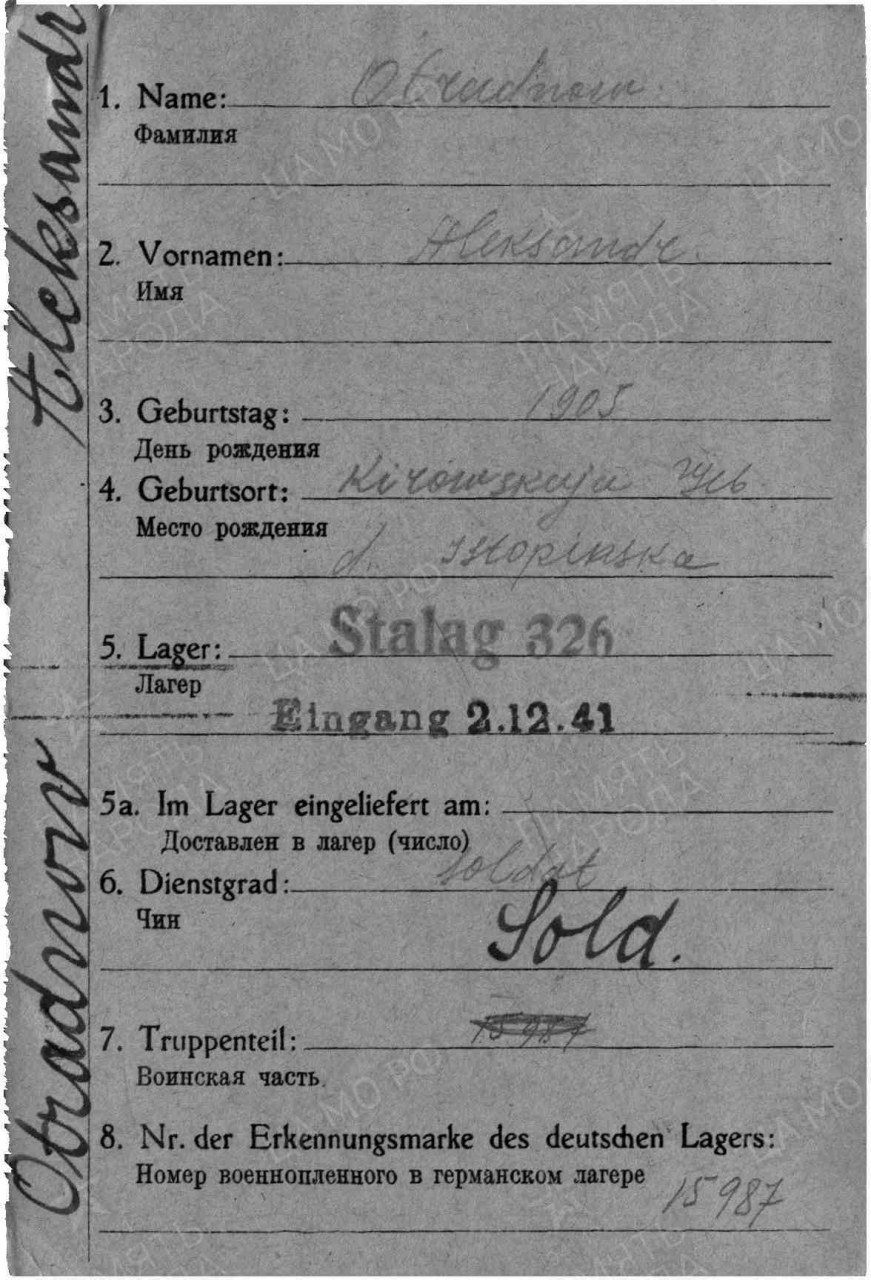 Otradnow Aleksandr
1. Name: Otradnow
Фамилия
2. Vornamen: Aleksandr.
Имя
3. Geburtstag: 1905
День рождения
4. Geburtsort: Kirowskaja
Место рождения
d.
5. Lager: Stalag 326
Лагер
Eingang 2.12.41
5a. Im Lager eingeliefert am:
Доставлен в лагер (число)
6. Dienstgrad: Soldat
Чин
Sold.
7. Truppenteil: 15987
Воинская часть.
8. Nr. der Erkennungsmarke des deutschen Lagers:
Номер военнопленного в германском лагере
15987
ЦА МО РФ
ПАМЯТЬ
НАРОДА